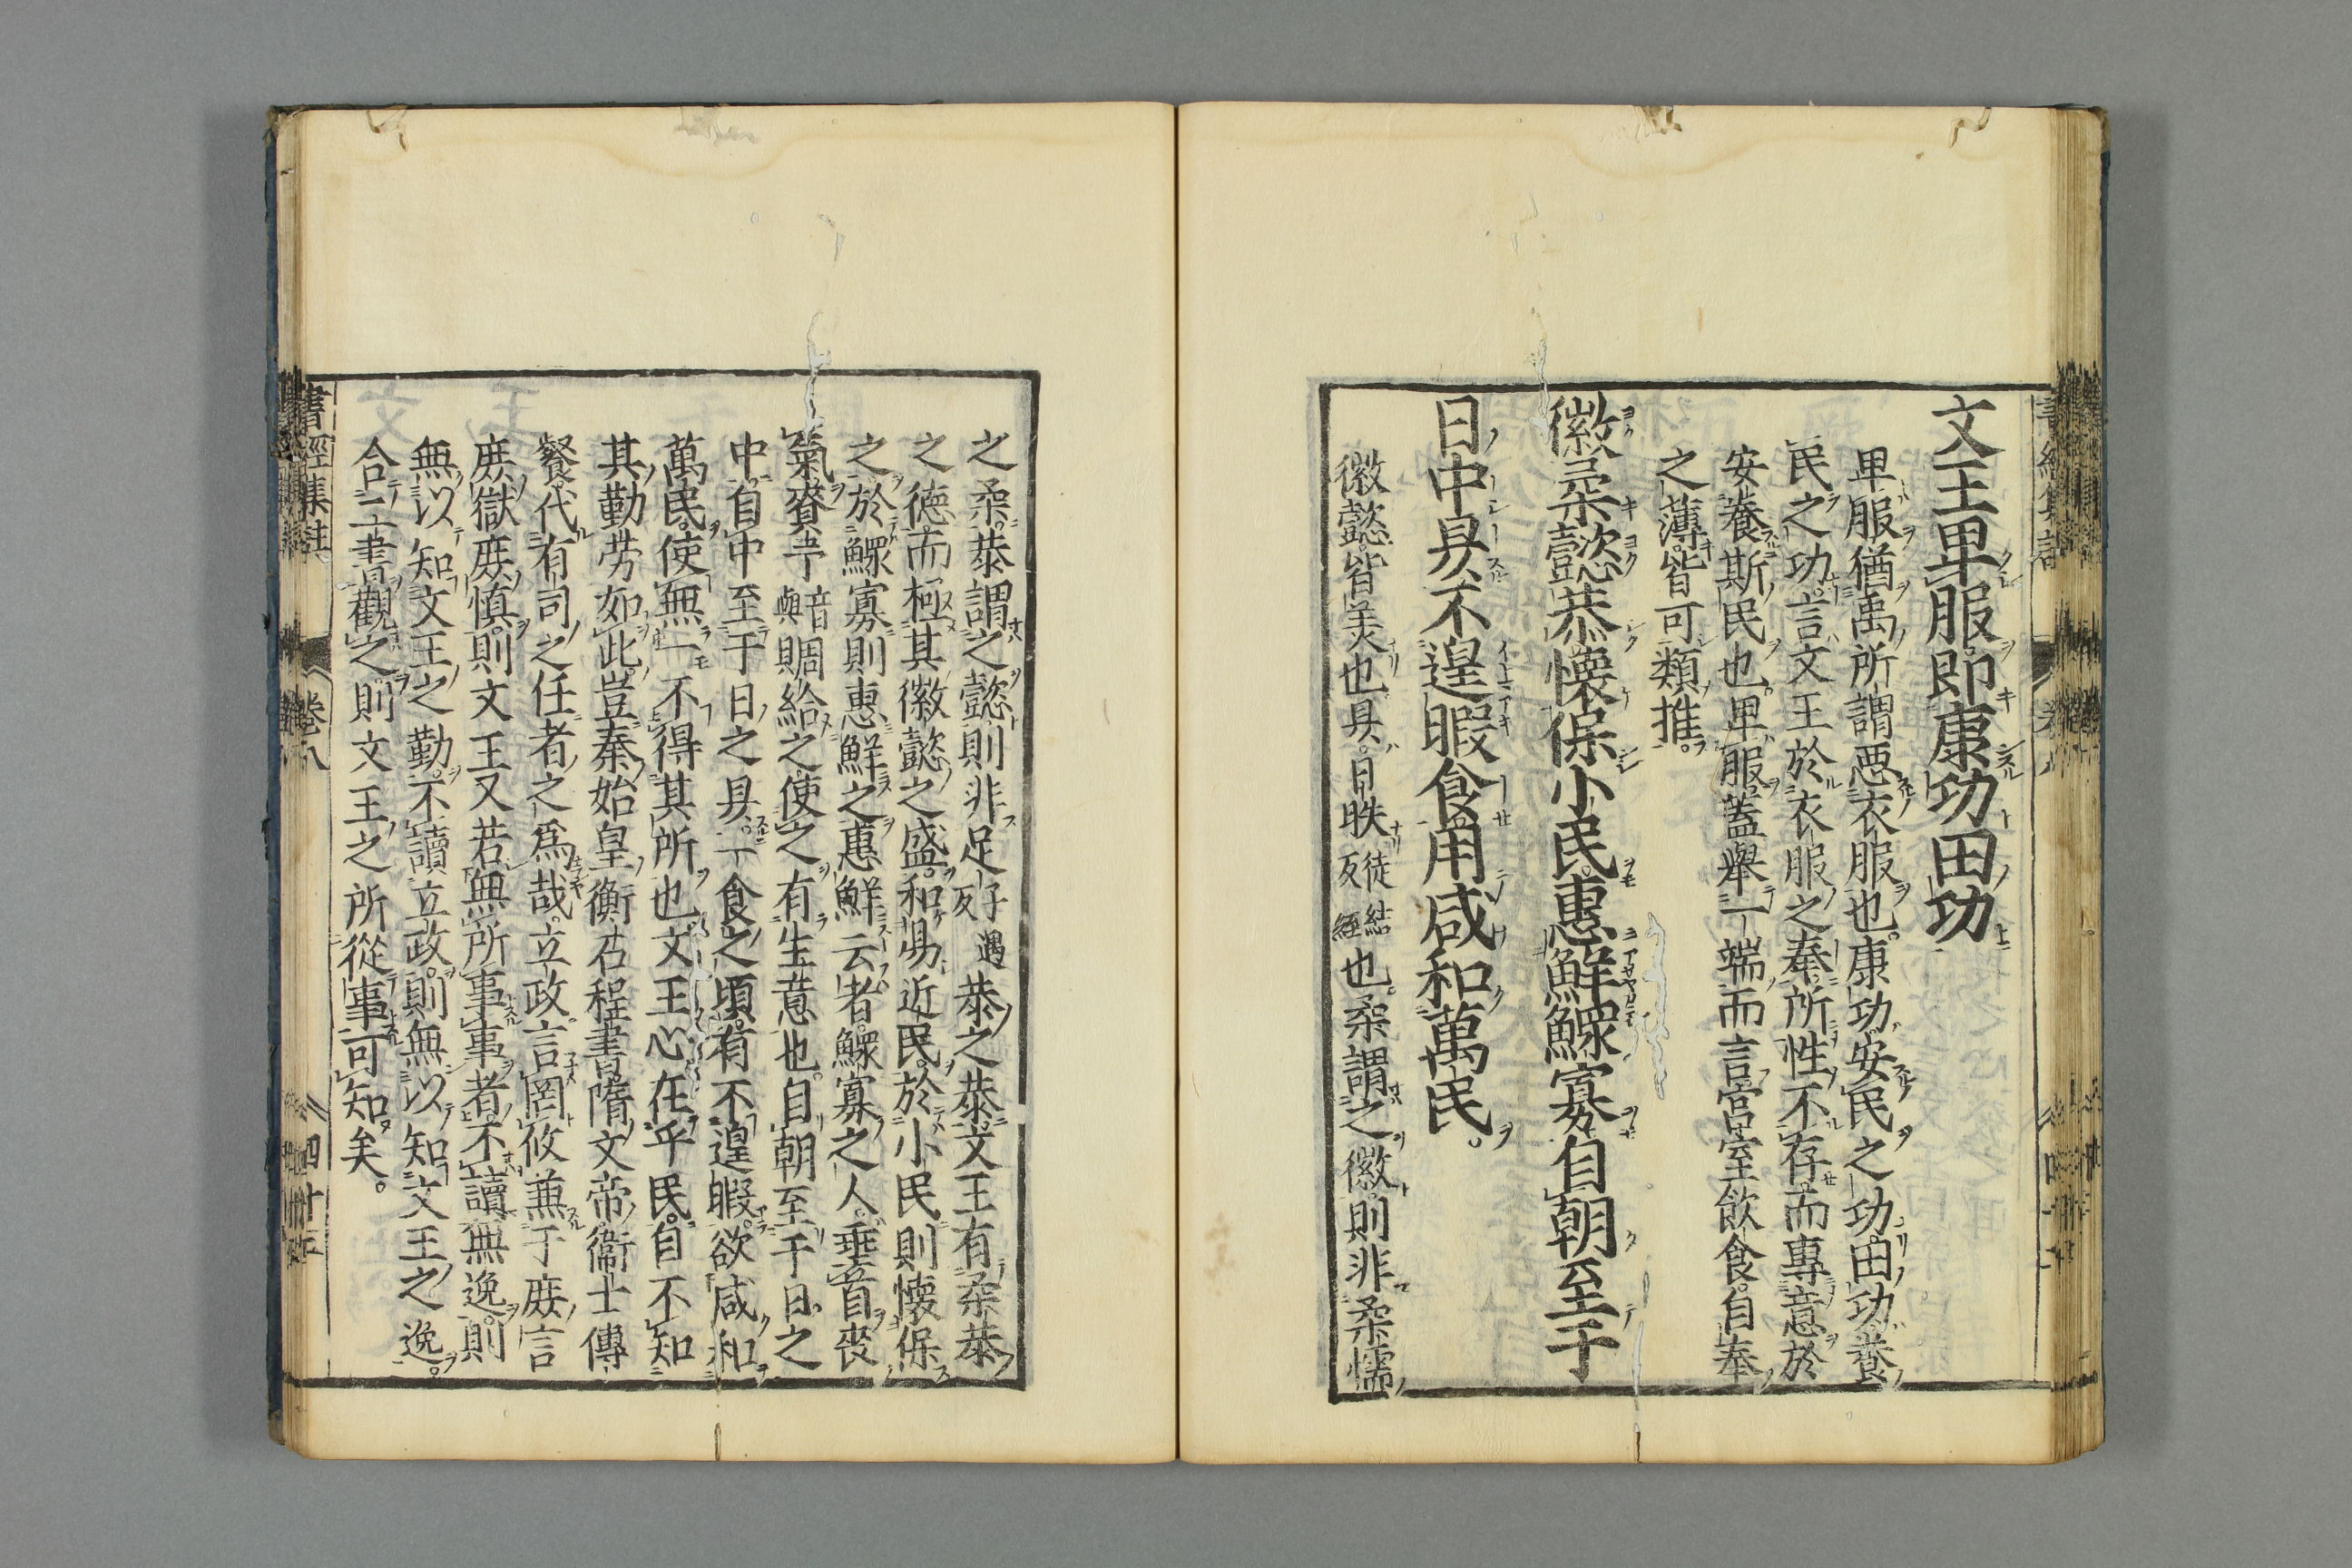 文王卑服。即康功田功
卑服猶禹所謂惡衣服也。康功。安民之功。田功。養
民之功。言文王於衣服之奉。所性不存。而專意於
安養斯民也。卑服。蓋舉一端而言。宮室飲食。自奉
之薄。皆可類推。
徽柔懿恭懷保小民。惠鮮鰥寡自朝至于
日中昃不遑暇食用咸和萬民。
徽懿。皆美也。昃。日昳徒結反經也。柔謂之徽。則非柔懦
之柔。恭謂之懿。則非足子遇反恭之恭。文王有柔恭
之德。而極其徽懿之盛。和易近民。於小民則懷保
之。於鰥寡則惠鮮之。惠鮮云者。鰥寡之人。垂首喪
氣。賚予音與賙給之。使之有生意也。自朝至于日之
中。自中至于日之昃。一食之頃。有不遑暇。欲咸和
萬民。使無一不得其所也。文王心在乎民。自不知
其勤勞如此。豈秦始皇衡石程書。隋文帝衛士傳
餐。代有司之任者之爲哉。立政。言罔攸兼于庶言
庶獄庶慎。則文王又若無所事事者。不讀無逸。則
無以知文王之勤。不讀立政。則無以知文王之逸。
合二書觀之。則文王之所從事可知。矣。
書經集註 卷八 四十